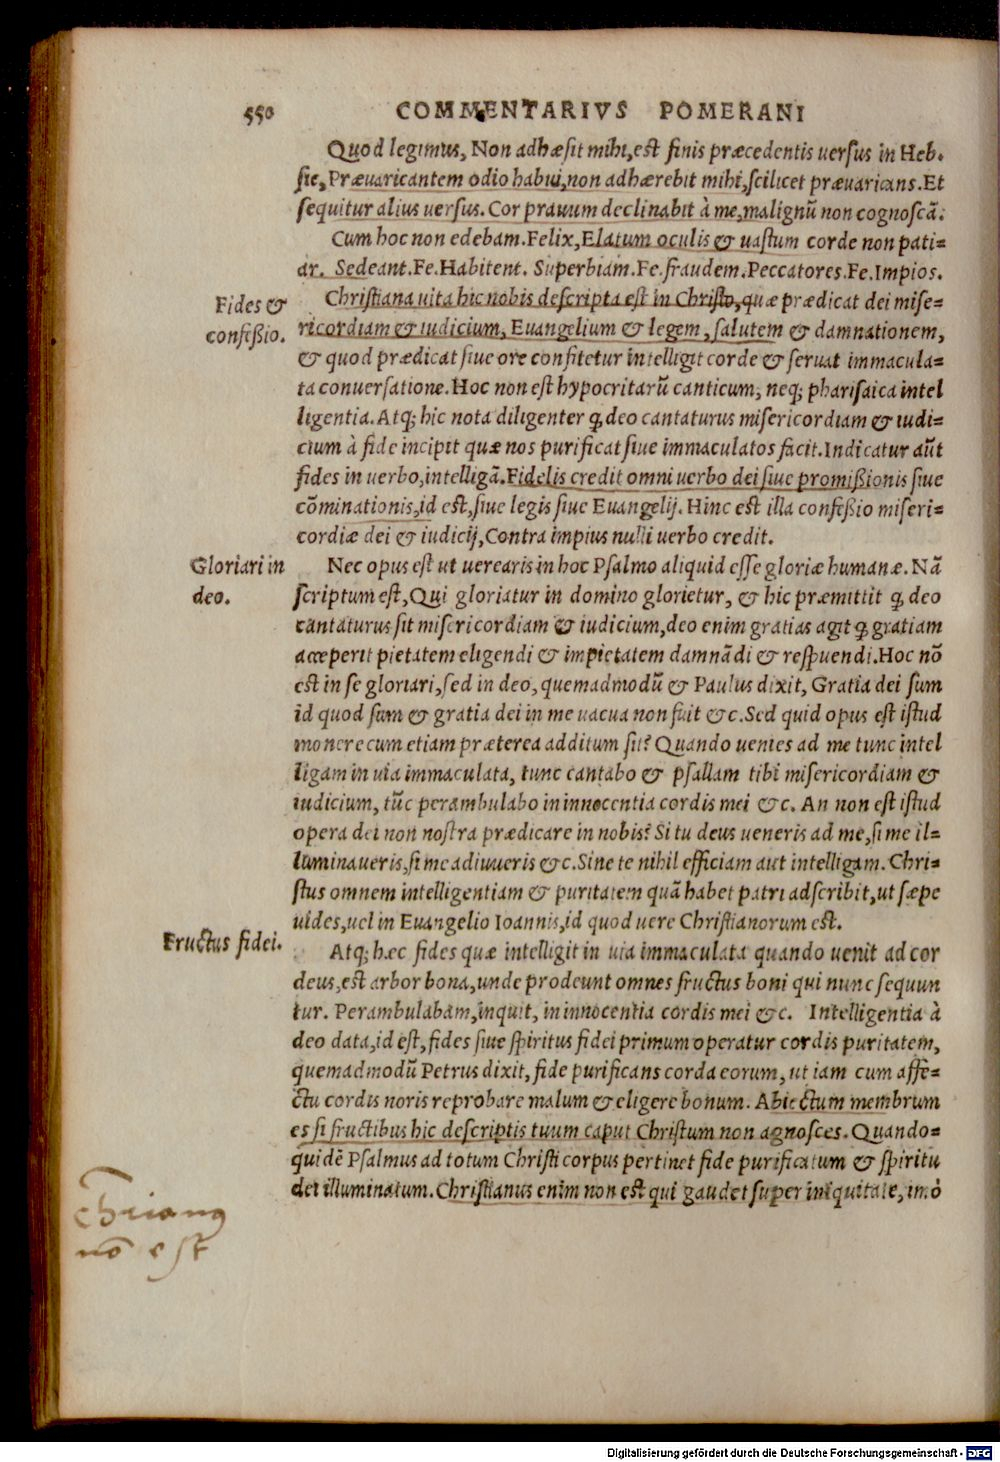 550 COMMENTARIVS POMERANI
Quod legimus, Non adhæsit mihi, est finis præcedentis uersus in Heb.
sic, Præuaricantem odio habui, non adhærebit mihi, scilicet præuaricans. Et
sequitur alius uersus. Cor prauum declinabit à me, malignũ non cognoscã.
Cum hoc non edebam. Felix, Elatum oculis & uastum corde non pati=
ar. Sedeant. Fe. Habitent. Superbiam. Fe. fraudem. Peccatores. Fe. Impios.
Fides &
confeßio.
Christiana uita hic nobis descripta est in Christo, quæ prædicat dei mise=
ricordiam & iudicium, Euangelium & legem, salutem & damnationem,
& quod prædicat siue ore confitetur intelligit corde & seruat immacula=
ta conuersatione. Hoc non est hypocritarũ canticum, neq; pharisaica intel
ligentia. Atq; hic nota diligenter ꝙ deo cantaturus misericordiam & iudi=
cium à fide incipit quæ nos purificat siue immaculatos facit. Indicatur aũt
fides in uerbo, intelligã. Fidelis credit omni uerbo dei siue promißionis siue
cõminationis, id est, siue legis siue Euangelij. Hinc est illa confeßio miseri=
cordiæ dei & iudicij, Contra impius nulli uerbo credit.
Gloriari in
deo.
Nec opus est ut uerearis in hoc Psalmo aliquid esse gloriæ humanæ. Nã
scriptum est, Qui gloriatur in domino glorietur, & hic præmittit ꝙ deo
cantaturus sit misericordiam & iudicium, deo enim gratias agit ꝙ gratiam
acceperit pietatem eligendi & impietatem damnãdi & respuendi. Hoc nõ
est in se gloriari, sed in deo, quemadmodũ & Paulus dixit, Gratia dei sum
id quod sum & gratia dei in me uacua non fuit &c. Sed quid opus est istud
monere cum etiam præterea additum sit? Quando uenies ad me tunc intel
ligam in uia immaculata, tunc cantabo & psallam tibi misericordiam &
iudicium, tũc perambulabo in innocentia cordis mei &c. An non est istud
opera dei non nostra prædicare in nobis? Si tu deus ueneris ad me, si me il=
luminaueris, si me adiuueris &c. Sine te nihil efficiam aut intelligam. Chri=
stus omnem intelligentiam & puritatem quã habet patri adscribit, ut sæpe
uides, uel in Euangelio Ioannis, id quod uere Christianorum est.
Fructus fidei.
Atq; hæc fides quæ intelligit in uia immaculata quando uenit ad cor
deus, est arbor bona, unde prodeunt omnes fructus boni qui nunc sequun
tur. Perambulabam, inquit, in innocentia cordis mei &c. Intelligentia à
deo data, id est, fides siue spiritus fidei primum operatur cordis puritatem,
quemadmodũ Petrus dixit, fide purificans corda eorum, ut iam cum affe=
ctu cordis noris reprobare malum & eligere bonum. Abiectum membrum
es si fructibus hic descriptis tuum caput Christum non agnosces. Quando=
quidẽ Psalmus ad totum Christi corpus pertinet fide purificatum & spiritu
dei illuminatum. Christianus enim non est qui gaudet super iniquitate, imò
nõ est
Digitalisierung gefördert durch die Deutsche Forschungsgemeinschaft - DFG